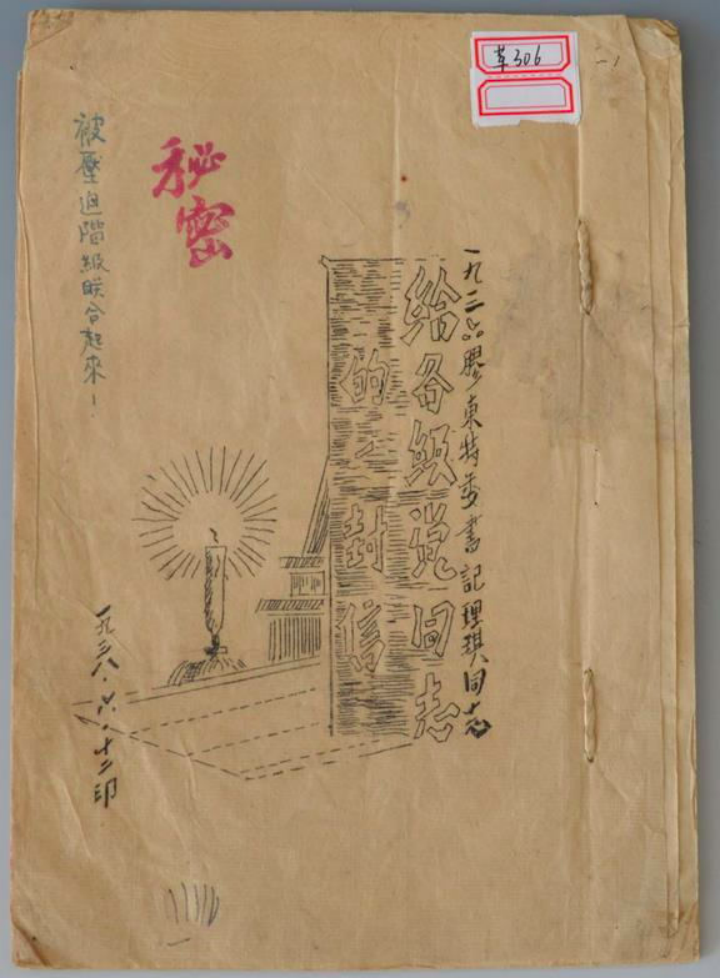 革306
一九三六膠東特委書記理琪同志
給各級党同志
的一封信
秘密
被壓迫階級联合起來！
一九三八·六·十二印